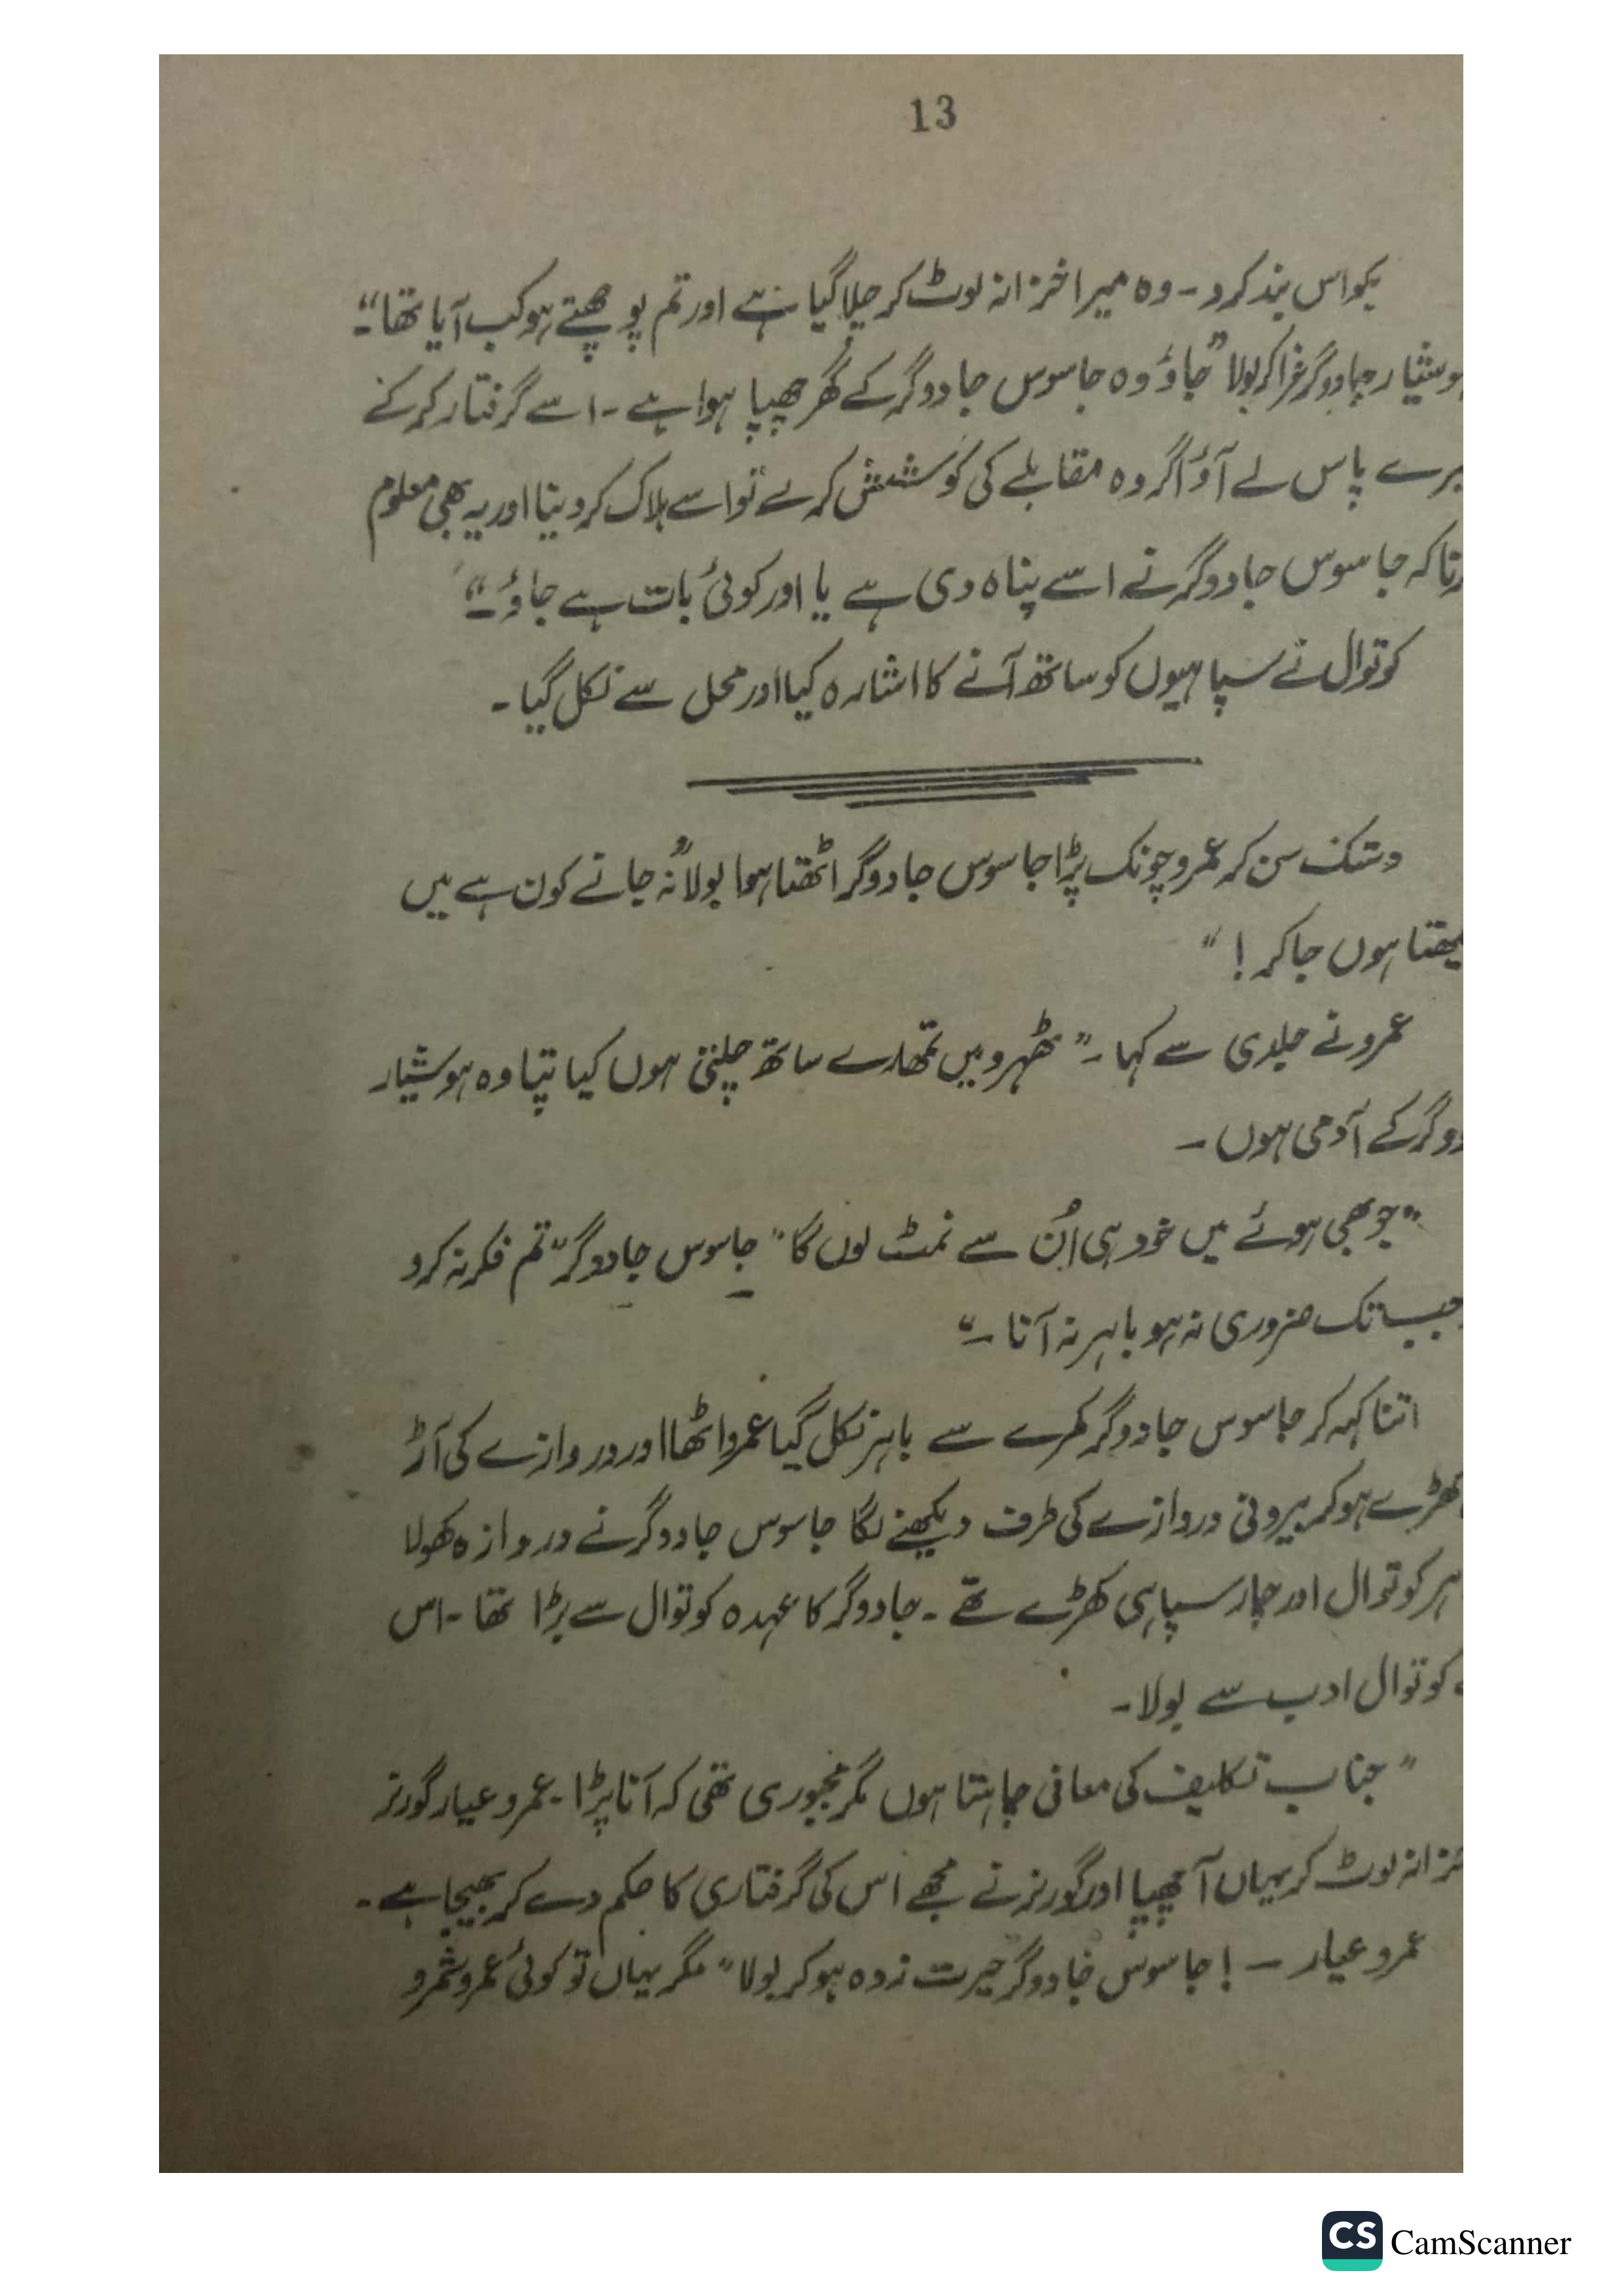 13
بکواس بند کرو۔ وہ میرا خزانہ لوٹ کر چلا گیا ہے اور تم پوچھتے ہو کب آیا تھا“۔
وشیار جادوگر غرا کر بولا ”جاؤ وہ جاسوس جادوگر کے گھر چھپا ہوا ہے ۔ اسے گرفتار کر کے
یرے پاس لے آؤ اگر وہ مقابلے کی کوشش کرے تو اسے ہلاک کر دینا اور یہ بھی معلوم
رنا کہ جاسوس جادوگر نے اسے پناہ دی ہے یا اور کوئی بات ہے جاؤ ۔“
کوتوال نے سپاہیوں کو ساتھ آنے کا اشارہ کیا اور محل سے نکل گیا ۔
دستک سن کر عمرو چونک پڑا جاسوس جادوگر اٹھتا ہوا بولا ”نہ جانے کون ہے میں
یکھتا ہوں جا کر ! “
عمرو نے جلدی سے کہا ۔ ” ٹھہرو میں تمھارے ساتھ چلتی ہوں کیا پتا وہ ہوشیار
دوگر کے آدمی ہوں ۔
”جو بھی ہوئے میں خود ہی اُن سے نمٹ لوں گا“ جاسوس جادوگر ”تم فکر نہ کرو
جب تک ضروری نہ ہو باہر نہ آنا ۔“
اتنا کہہ کر جاسوس جادوگر کمرے سے باہر نکل گیا عمرو اٹھا اور دروازے کی آڑ
کھڑے ہو کر بیرونی دروازے کی طرف دیکھنے لگا جاسوس جادوگر نے دروازہ کھولا
ہر کوتوال اور چار سپاہی کھڑے تھے ۔ جادوگر کا عہدہ کوتوال سے بڑا تھا ۔ اس
کوتوال ادب سے بولا ۔
” جناب تکلیف کی معافی چاہتا ہوں مگر مجبوری تھی کہ آنا پڑا ۔ عمرو عیار گورنر
خزانہ لوٹ کر یہاں آ چھپا اور گورنر نے مجھے اس کی گرفتاری کا حکم دے کر بھیجا ہے ۔
عمرو عیار — ! جاسوس جادوگر حیرت زدہ ہو کر بولا ” مگر یہاں تو کوئی عمرو شمرو
CS CamScanner